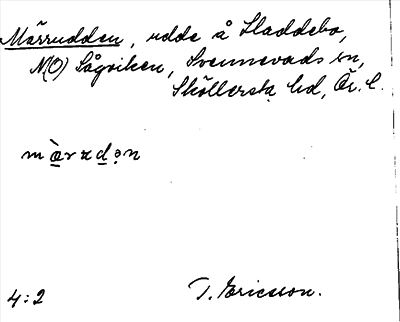 Märrudden, udde å Sladdebo,
NO) Sågviken, Svennevads sn,
Sköllersta hd, Ör. l.
T. Ericsson.
4:2